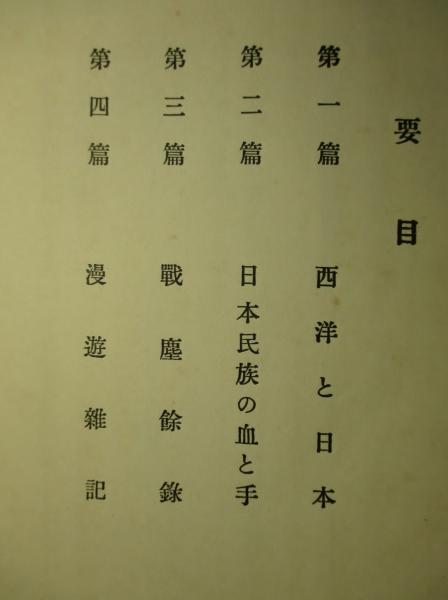 要目
第一篇 西洋と日本
第二篇 日本民族の血と手
第三篇 戰塵餘錄
第四篇 漫遊雜記